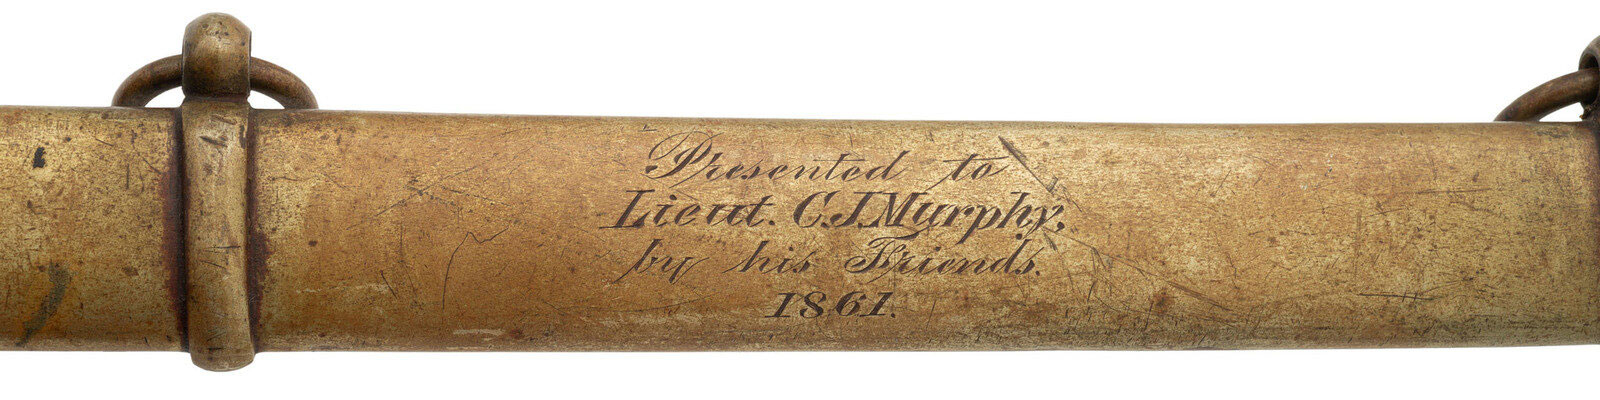 Presented to
Lieut. C.J.Murphy,
by his Friends.
1861.